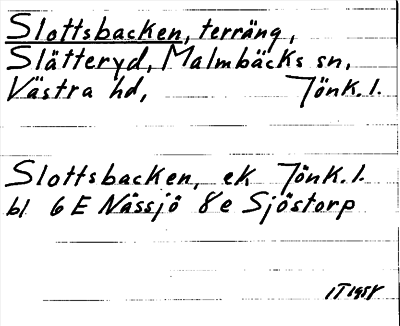 Slottsbacken, terräng,
Slätteryd, Malmbäcks sn,
Västra hd, Jönk. l.
Slottsbacken, ek Jönk. l.
bl 6 E Nässjö 8e Sjöstorp